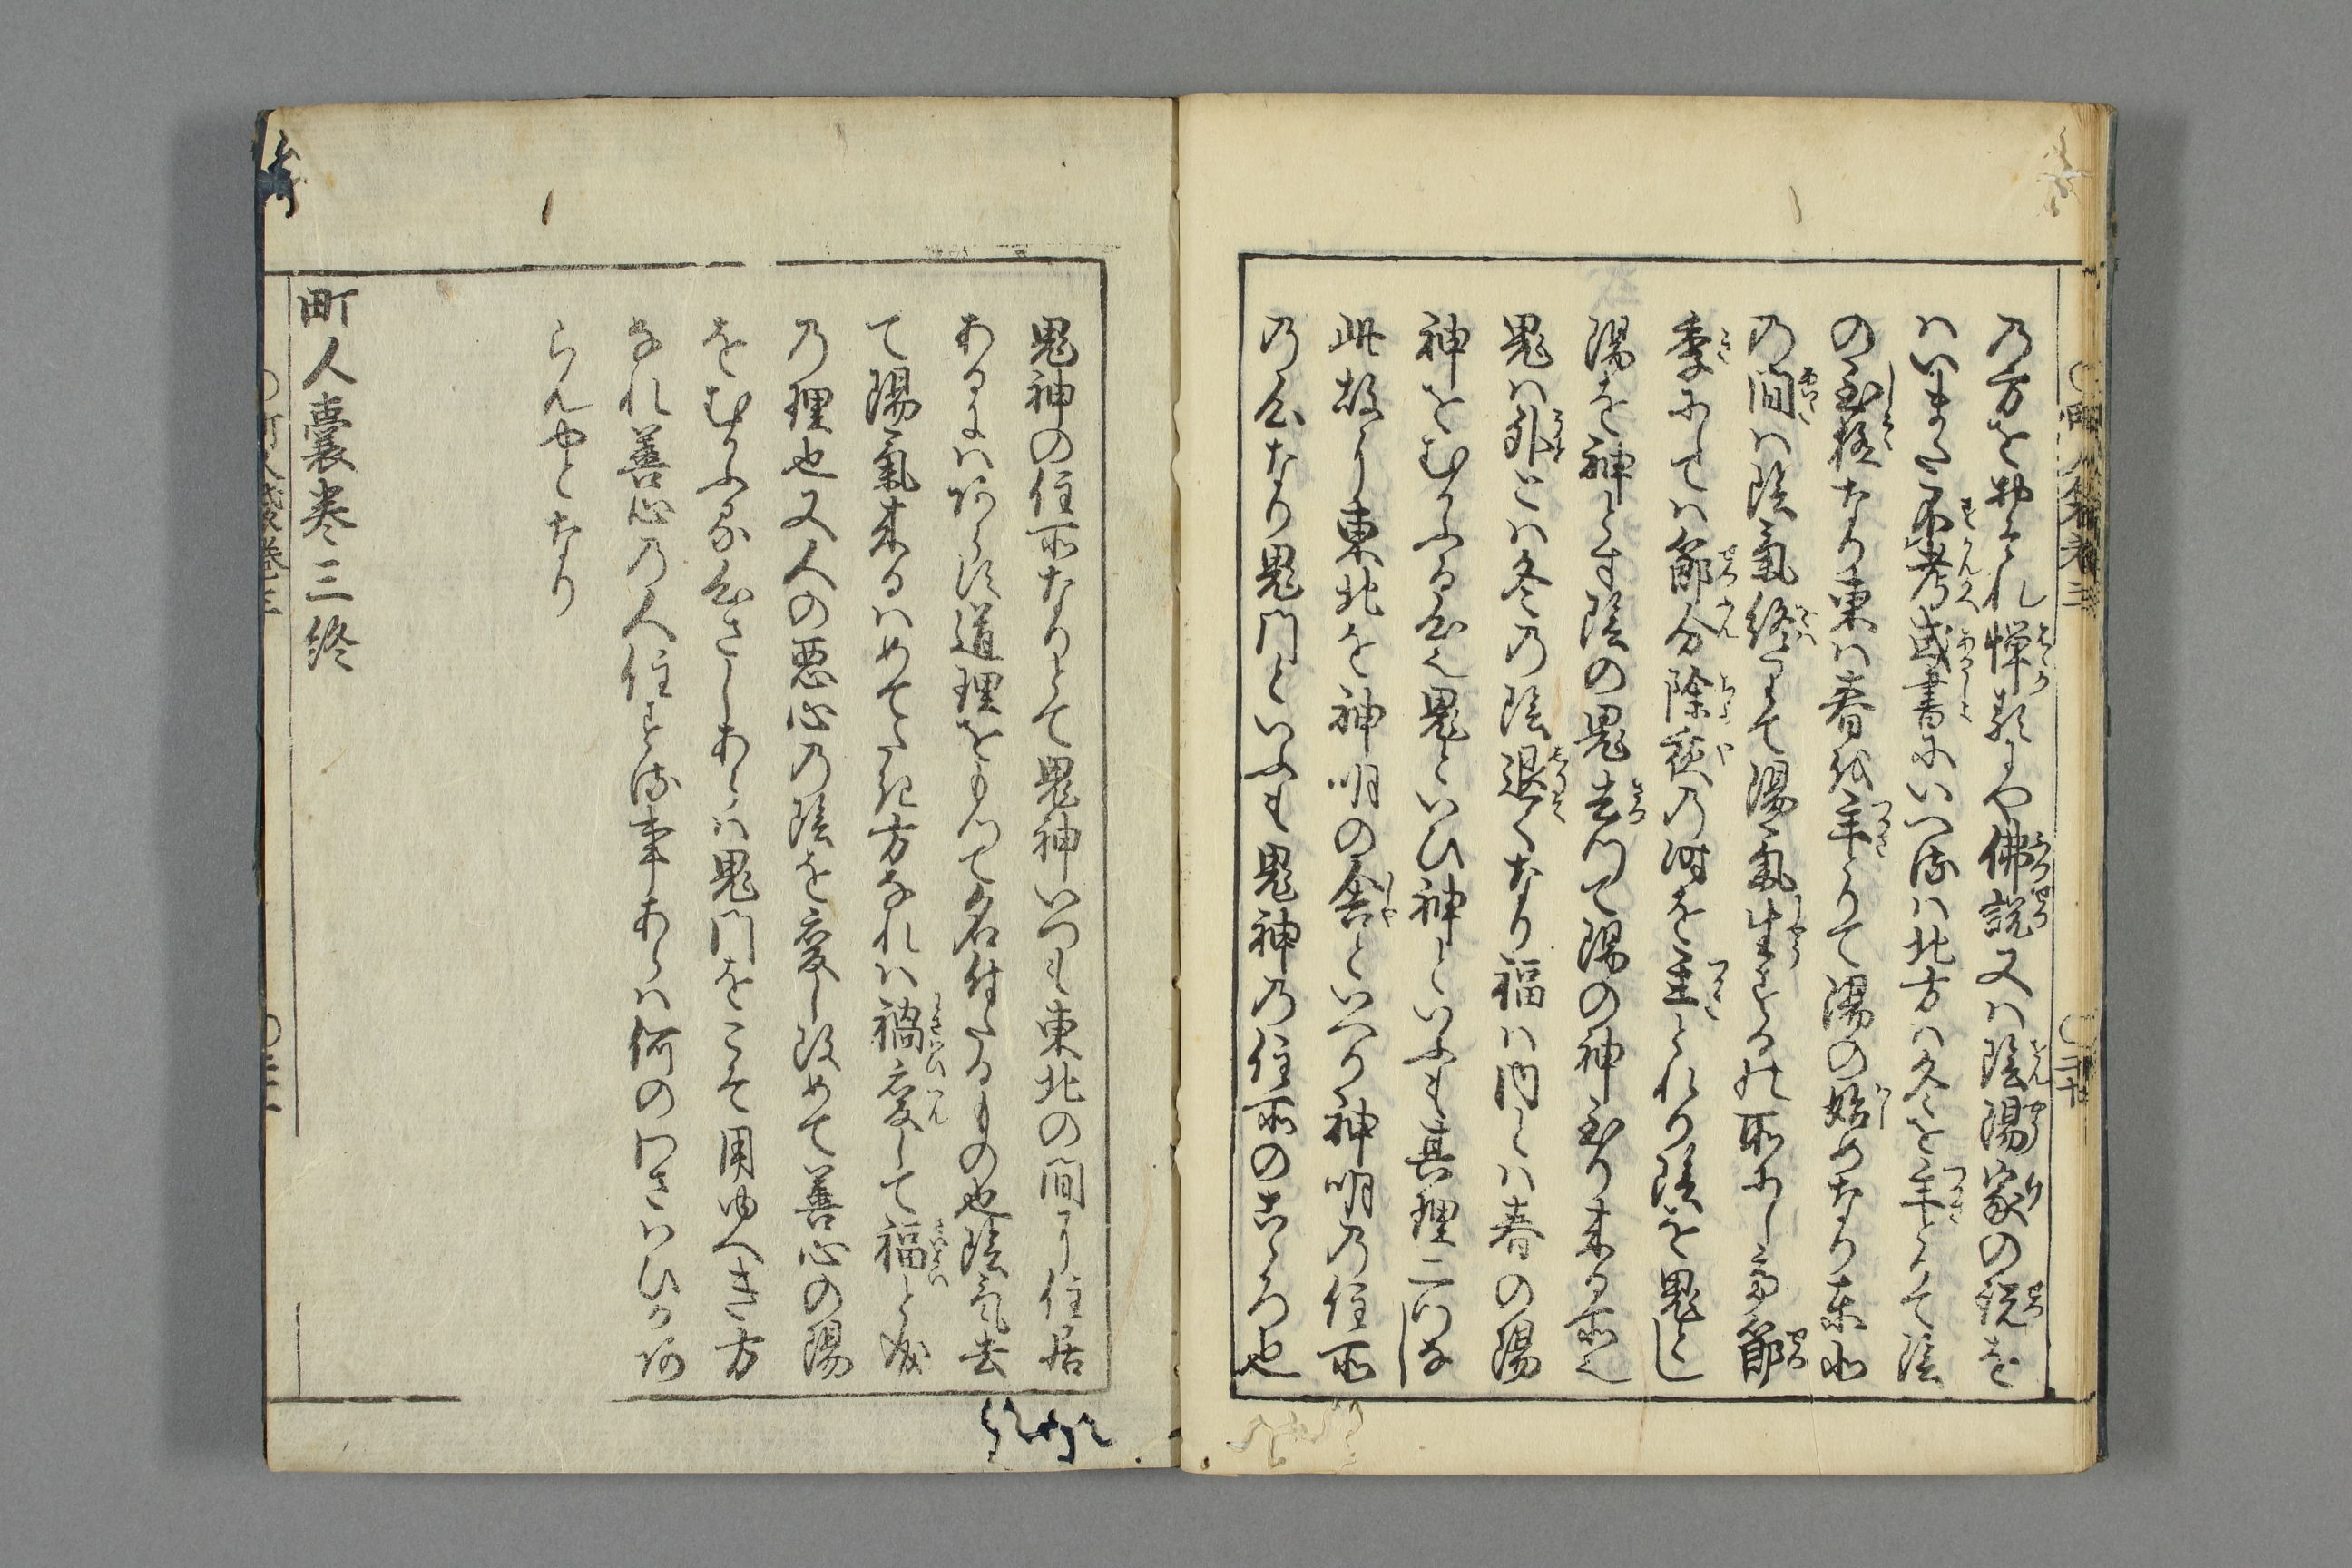 乃方をおそれ憚事にや佛説又ハ陰陽家の説を
ハいまた不考或書にいへるハ北方ハ冬を主とりて陰
の至極なり東ハ春を主とりて陽の始めなり東北
乃間ハ陰氣終りて陽氣生する所にして節
季にしてハ節分除夜乃時を主とれり陰を鬼とし
陽を神とす陰の鬼去つて陽の神至り来る所也
鬼ハ外とハ冬乃陰退くなり福ハ内とハ春の陽
神をむかふる心也鬼といひ神といふも其理二つな
此故に東北を神明の舎といへり神明乃住所
乃心なり鬼門といふも鬼神乃住所のこゝろ也
鬼神の住所なりとて鬼神いつも東北の間に住居
あるにハあらす道理をもつて名付たるもの也陰気去
て陽氣来るハめてたき方なれハ禍変して福と成
乃理也又人の悪心乃陰を変し改めて善心の陽
をむかふる心さしあらハ鬼門をこそ用ゆへき方
なれ善心乃人住する事あらハ何のわさハひかあ
らんやとなり
町人嚢巻三終